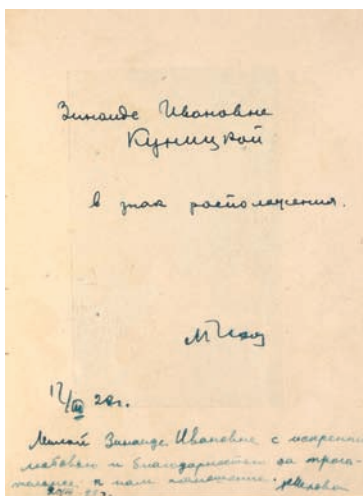 Зинаиде Ивановне
Куницкой
в знак расположения.
12/III 28г.
Милой Зинаиде Ивановне с искренней
любовью и благодарностью за трога-
к нам отношение.